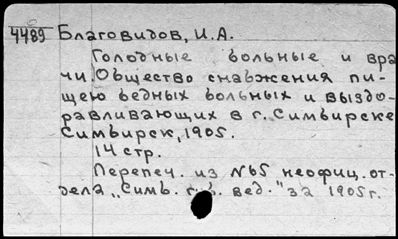 4489 Благовидов, И.А.
Голодные больные и вра
чи. Общество снабжения пи-
щею бедных больных и выздо-
равливающих в г. Симбирске
Симбирск, 1905.
14 стр.
Перепеч. из №65 неофиц. от-
дела „Симб. г.б. вед." за 1905 г.